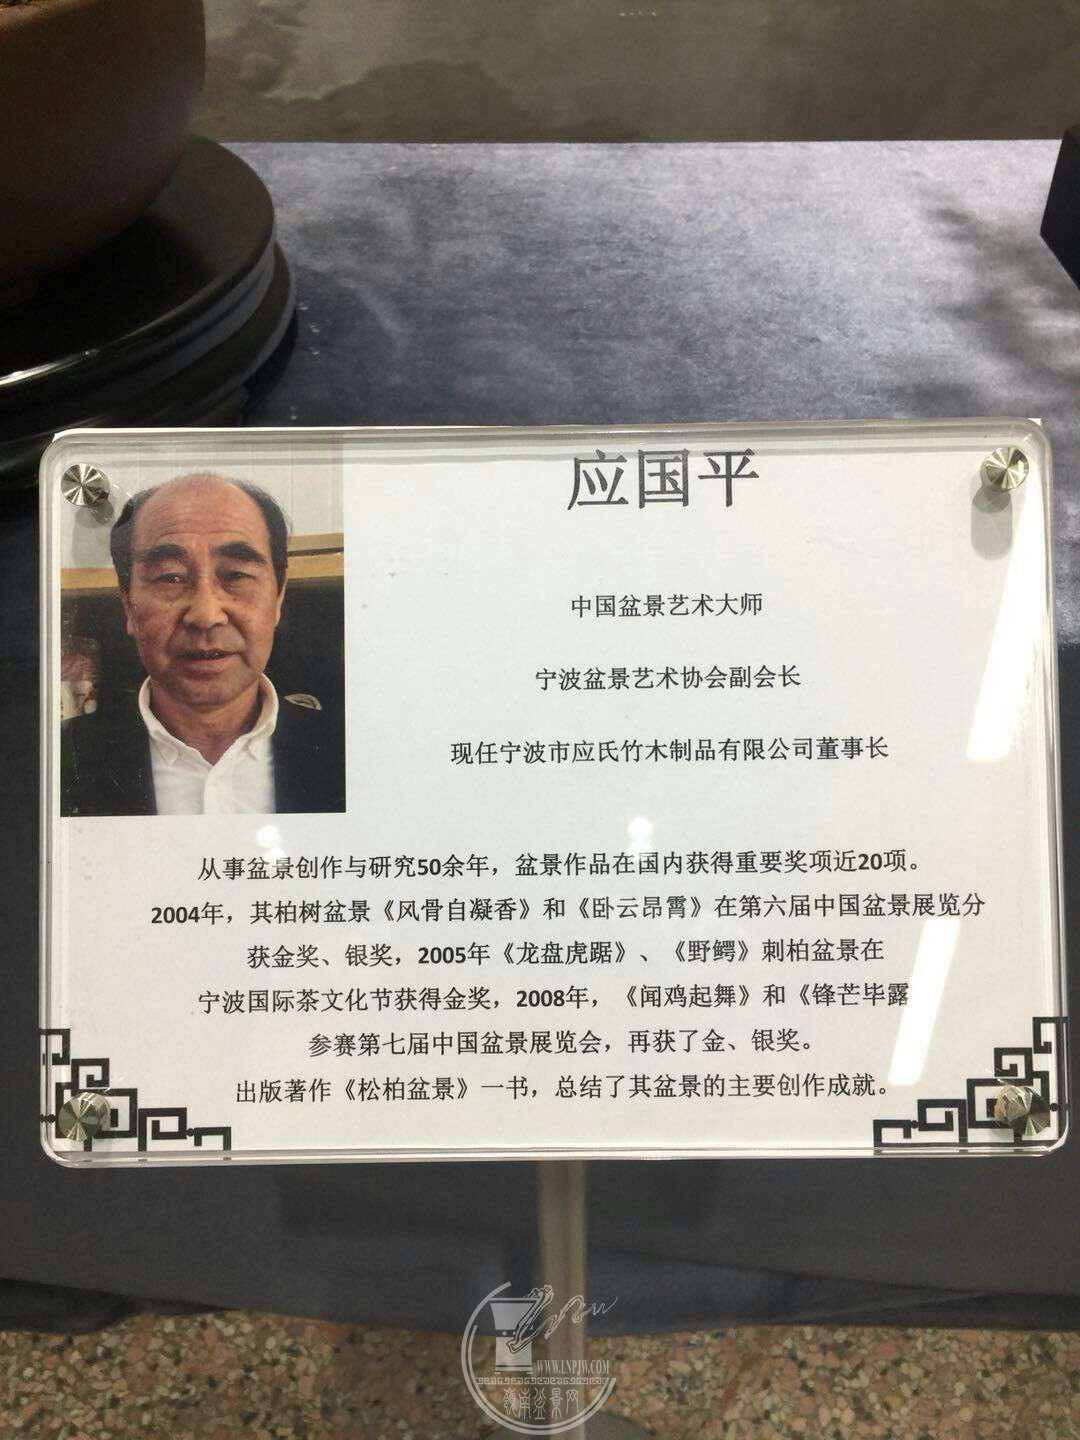 应国平
中国盆景艺术大师
宁波盆景艺术协会副会长
现任宁波市应氏竹木制品有限公司董事长
从事盆景创作与研究50余年，盆景作品在国内获得重要奖项近20项。
2004年，其柏树盆景《风骨自凝香》和《卧云昂霄》在第六届中国盆景展览分
获金奖、银奖，2005年《龙盘虎踞》、《野鳄》刺柏盆景在
宁波国际茶文化节获得金奖，2008年，《闻鸡起舞》和《锋芒毕露
参赛第七届中国盆景展览会，再获了金、银奖。
出版著作《松柏盆景》一书，总结了其盆景的主要创作成就。
WWW.LNPJW.COM
嶺南盆景网